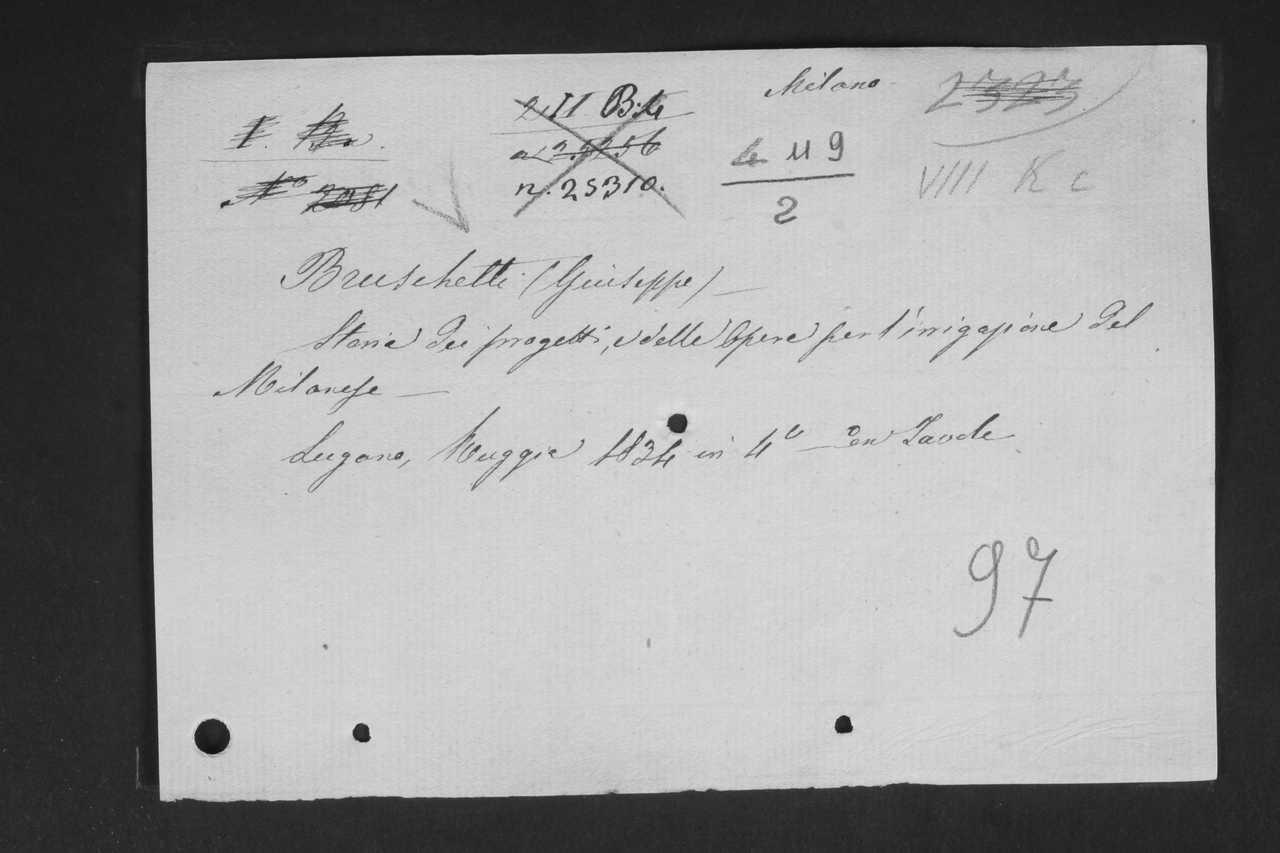 Milano
2323
I.
2 II B.4
a 25256
n. 25310.
4 119
2
VIII K c
No 2081
Bruschetti (Giuseppe) —
Storia dei progetti, e delle Opere per l'irrigazione del
Milanese —
Lugano, Ruggia 1834 in 4o — Con Tavole
97